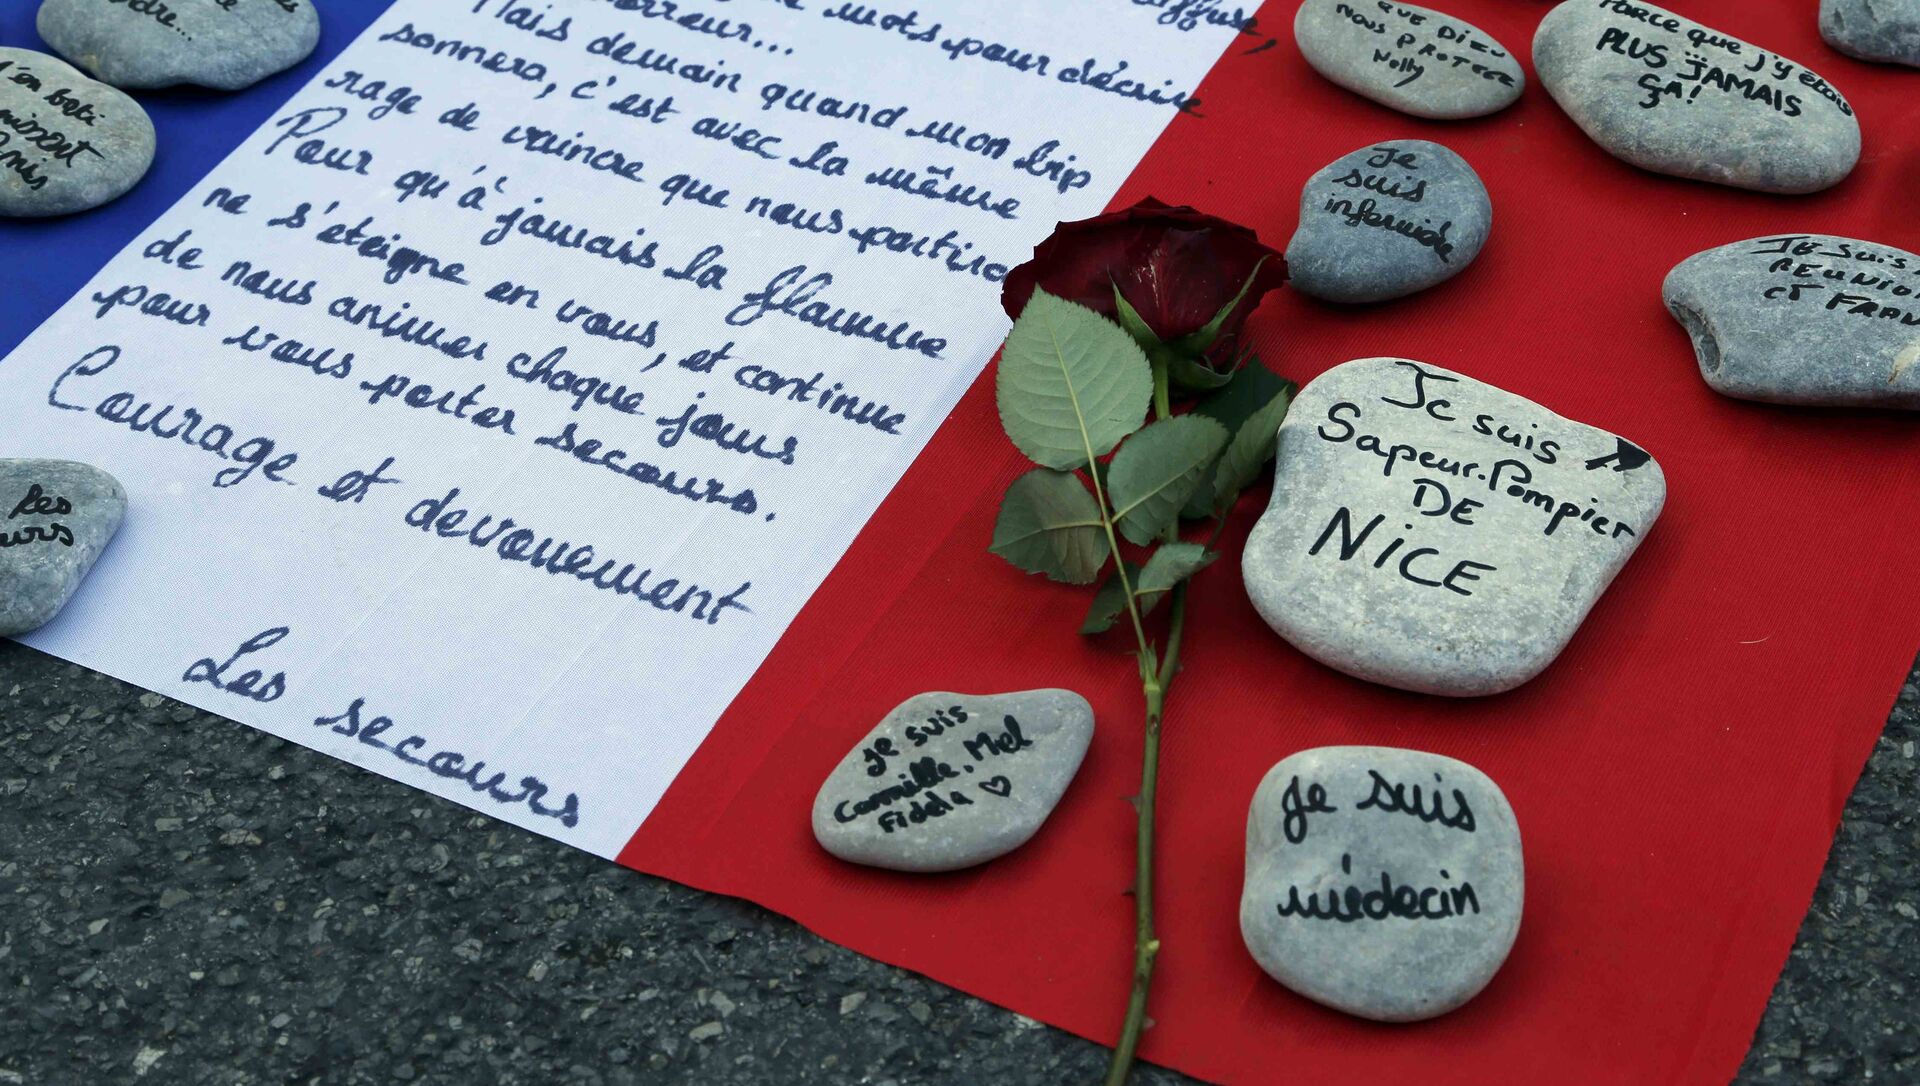 mots pour décrire
Mais demain quand mon bip
sonnera, c'est avec la même
rage de vaincre que nous
Pour qu'à jamais la flamme
ne s'éteigne en vous, et continue
de nous animer chaque jours
pour vous porter secours.
Courage et devouement
Les secours
QUE DIEU
NOUS PROTEGE
Nelly
Parce que j'y étais
PLUS JAMAIS
ÇA!
Je
suis
infirmière
Je suis
REUNION
ET FRAN
Je suis
Sapeur-Pompier
DE
NICE
Je suis
Camille, Mel
Fidela ♡
Je suis
médecin
les